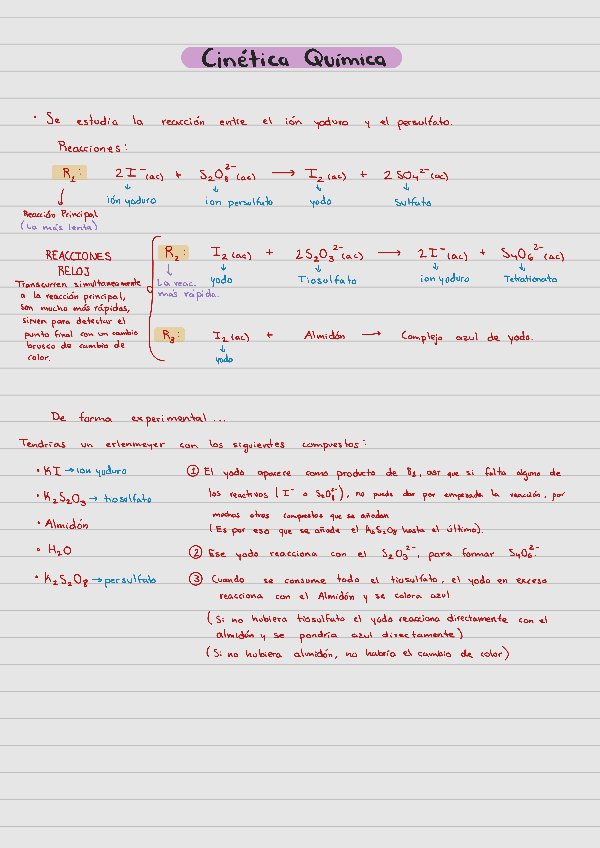 Cinética Química
· Se estudia la reacción entre el ión yoduro y el persulfato.
Reacciones:
R₁: 2I⁻(ac) + S₂O₈²⁻(ac) → I₂(ac) + 2SO₄²⁻(ac)
↓ ión yoduro ↓ ion persulfato ↓ yodo ↓ sulfato
Reacción Principal
(La más lenta)
REACCIONES
RELOJ
Transcurren simultaneamente
a la reacción principal,
son mucho más rápidas,
sirven para detectar el
punto final con un cambio
brusco de cambio de
color.
R₂: I₂(ac) + 2S₂O₃²⁻(ac) → 2I⁻(ac) + S₄O₆²⁻(ac)
↓ ↓ yodo ↓ Tiosulfato ↓ ion yoduro ↓ Tetrationato
La reac.
más rápida.
R₃: I₂(ac) + Almidón → Complejo azul de yodo.
↓
yodo
De forma experimental...
Tendrías un erlenmeyer con los siguientes compuestos:
· KI → ion yoduro
· K₂S₂O₃ → tiosulfato
· Almidón
· H₂O
· K₂S₂O₈ → persulfato
① El yodo aparece como producto de R₁, así que si falta alguno de
los reactivos (I⁻ o S₂O₈²⁻), no puede dar por empezada la reacción, por
muchos otros compuestos que se añadan
(Es por eso que se añade el K₂S₂O₈ hasta el último).
② Ese yodo reacciona con el S₂O₃²⁻, para formar S₄O₆²⁻.
③ Cuando se consume todo el tiosulfato, el yodo en exceso
reacciona con el Almidón y se colora azul
(Si no hubiera tiosulfato el yodo reacciona directamente con el
almidón y se pondría azul directamente)
(Si no hubiera almidón, no habría el cambio de color)